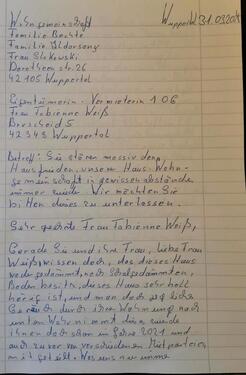 Wohngemeinschaft Wuppertal 31.03.
Familie Bechte
Familie
Frau
Dorotheen str. 26
42105 Wuppertal
Eigentümerin - Vermieterin 1.OG
Frau Fabienne Weiß
5
42349 Wuppertal
Betreff: Sie stören massiv den
Hausfrieden, unsere Haus-Wohn-
gemeinschaft in gewissen abständen
immer wieder. Wir möchten Sie
bitten dieses zu unterlassen.
Sehr geehrte Frau Fabienne Weiß,
Gerade Sie und ihre Frau, liebe Frau
Weiß wissen doch, das dieses Haus
weder gedämmt, noch Schallgedämmten
Boden besitz, dieses Haus sehr hell
hörig ist, und man doch jegliche
Geräusch durch ihre Wohnung nach
unten Wahrnimmt dies, wurde
ihnen doch schon im Jahre 2021 und
auch zuvor von verschieden Mietparteien
mit geteilt. Was uns nun immer